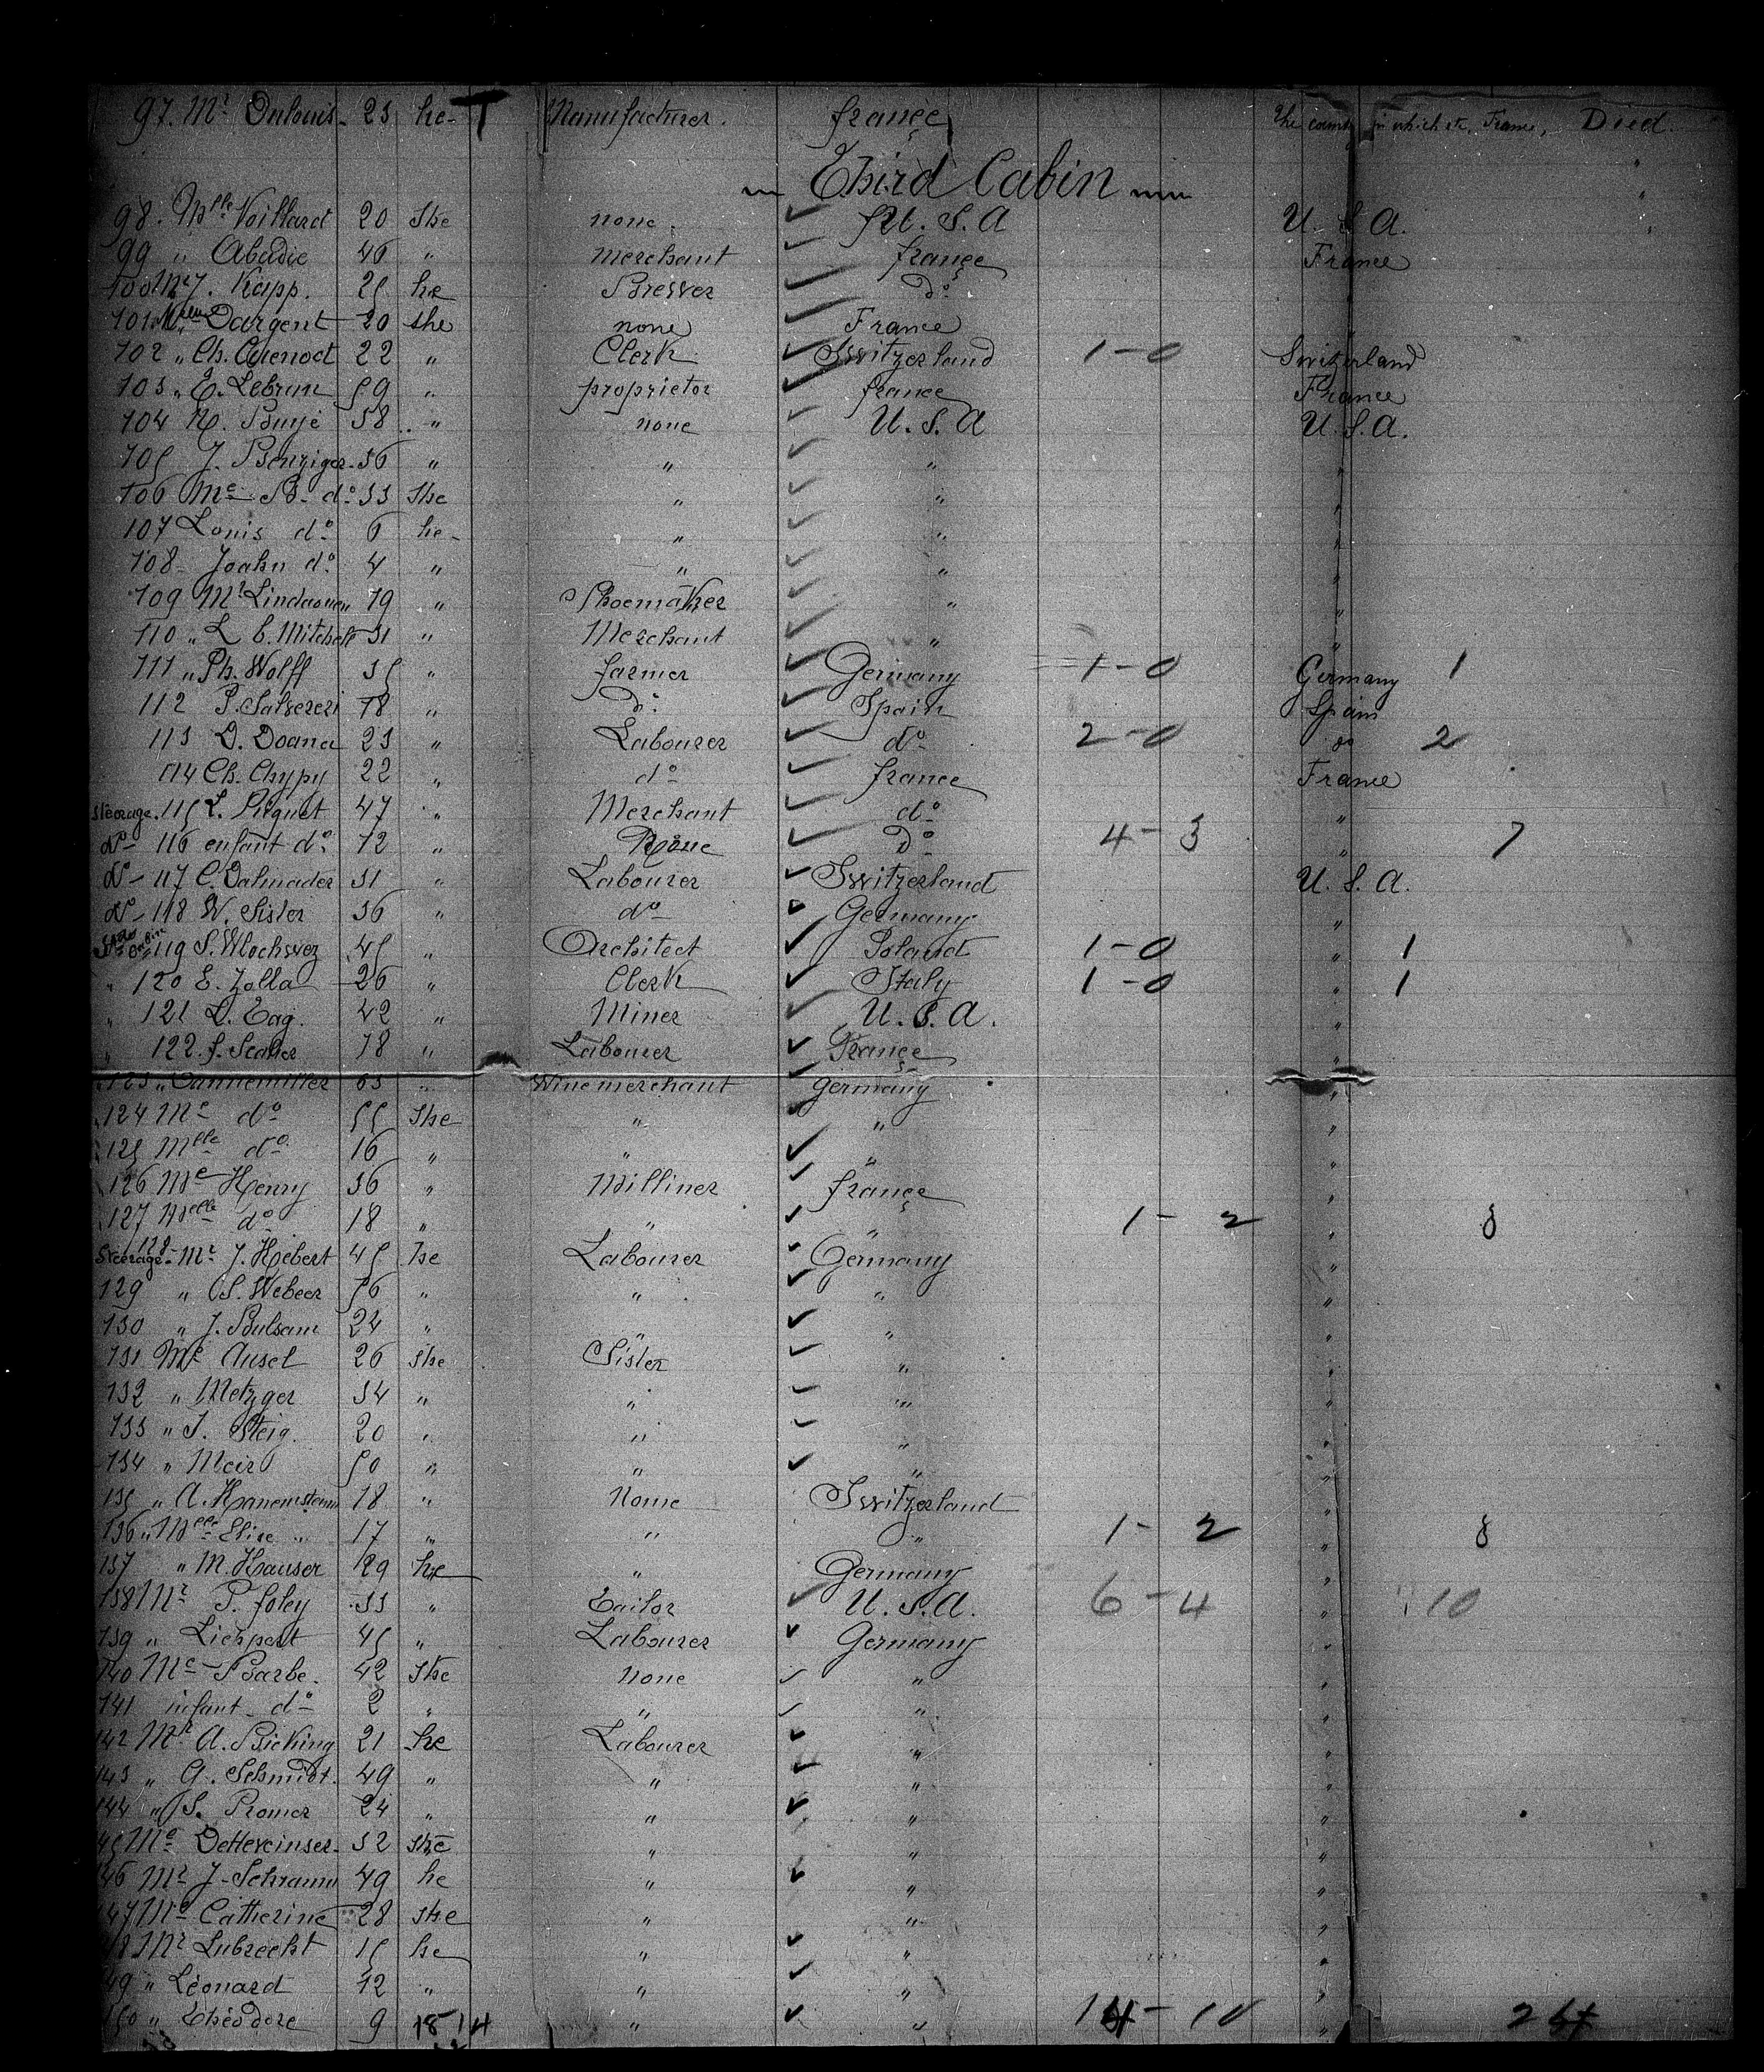 97. Mr Dulouis - 23 he - T Manufacturer. france The country in which etc, France, Died.
Third Cabin
98. Mlle Voillard 20 She none. U. S. A U. S. A.
99 " Abadie 46 " Merchant france France
100 Mr J. Kapp. 25 he Brewer do "
101 Melle Dargent 20 she none France "
102 " Ch. Quenoct 22 " Clerk Switzerland 1-0 Switzerland
103 " E. Lebrun 59 " proprietor france France
104 N. Bunje 38 " none U. S. A U. S. A.
105 J. Benziger - 36 " " " "
106 Me B- do 33 She " " "
107 Louis do 6 he - " " "
108 - Joahn do 4 " " " "
109 Mr 19 " Shoemaker " "
110 " L b. Mitchell 31 " Merchant " "
111 " Ph. Wolff 35 " farmer Germany 1-0 Germany 1
112 P. Salvereri 18 " do Spain Spain
113 D. Doana 23 " Labourer do 2-0 do 2
114 Ch. Chypy 22 " do france France
steerage. 115 L. Piguet 47 " Merchant do "
do - 116 enfant do 12 " None Do 4-3 " 7
do - 117 C. Dalmader 31 " Labourer Switzerland U. S. A.
do - 118 W. Sister 36 " do Germany "
119 S. Wlochswez 45 " Architect Poland 1-0 " 1
" 120 E. Zolla 26 " Clerk Italy 1-0 " 1
" 121 L. Eag. 42 " Miner U. S. A. "
" 122. f. Scaher 18 " Labourer France "
" 123 " Dannemiller 63 " Wine merchant germany "
" 124 Me do 55 She " " "
" 125 Mlle do 16 " " " "
126 Me Henry 36 " Milliner france "
127 Melle do 18 " " " 1- 2 " 3
steerage - 128 - Mr J. Hebert 45 he Labourer Germany "
129 " S. Webeer 56 " " " "
130 " J. Bulsam 24 " " " "
131 Me Ausel 26 She Sister " "
132 " Metzger 34 " " " "
133 " J. Steig. 20 " " " "
134 " Meir 50 " " " "
135 " A. 18 " None Switzerland "
136 " Mlle Elise " 17 " " " 1- 2 " 3
137 " M. Hauser 29 he " Germany "
138 Mr P. foley 33 " Tailor U. S. A. 6-4 " 10
139 " Liehpert 45 " Labourer Germany "
140 Me Barbe. 42 She none " "
141 infant - do 2 " " " "
142 Mr A. Bicking 21 he Labourer " "
143 " G. Schmidt. 49 " " " "
144 " S. Promer 24 " " " "
45 Me Dettereinser - 32 she " " "
46 Mr J - Schramm 49 he " " "
47 Me Catherine 28 she " " "
48 Mr Lubrecht 15 he " " "
49 " Léonard 12 " " " "
150 " Théodore 9 18 14 " " 14-10 " 24